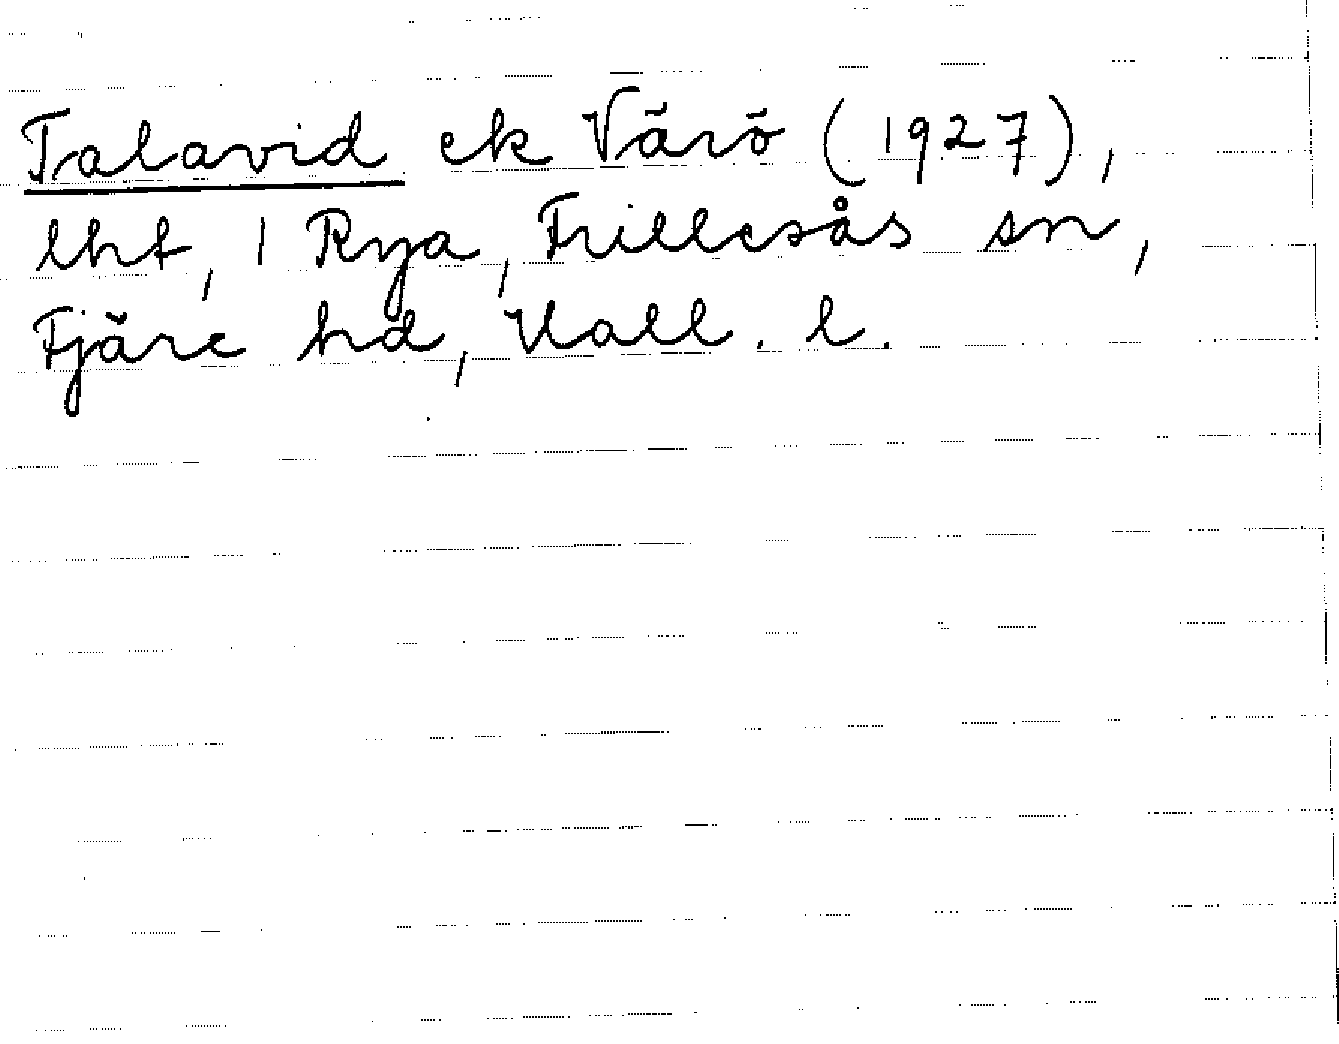 Talavid ek Värö (1927),
lht, 1 Rya, Frillesås sn,
Fjäre hd, Hall. l.